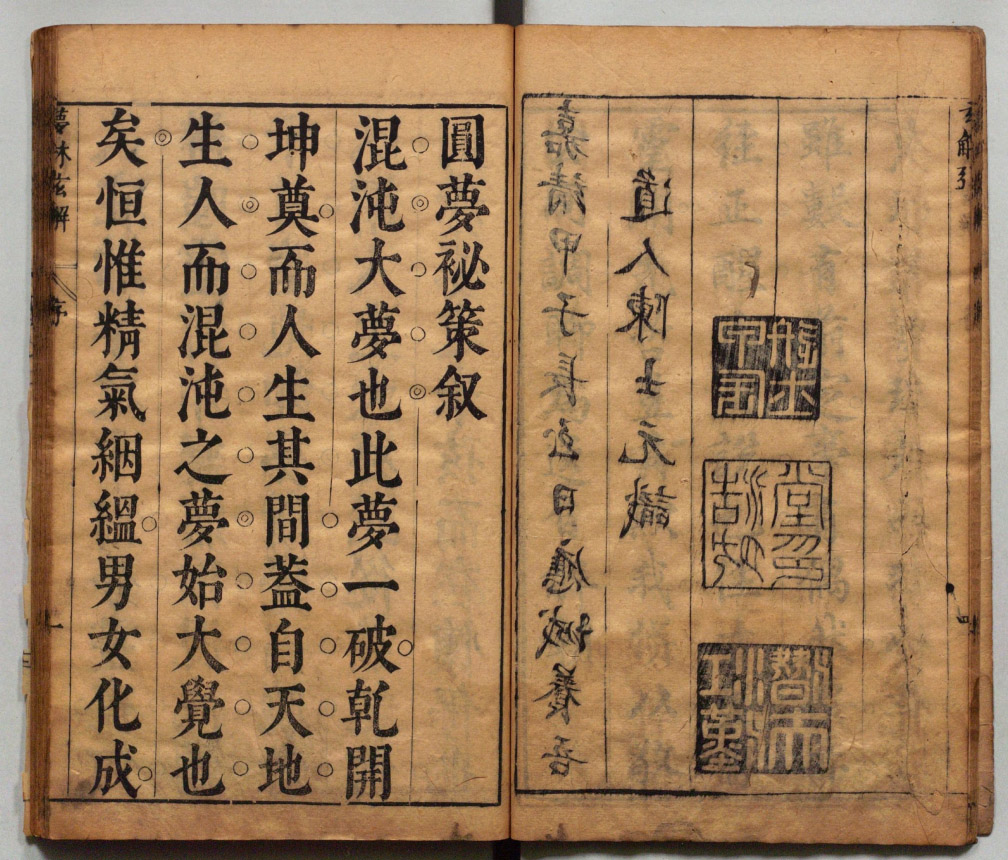 嘉靖甲子長至日應城養吾
道人陳士元識
圓夢祕策叙
混沌大夢也此夢一破乾開
坤奠而人生其間蓋自天地
生人而混沌之夢始大覺也
矣恒惟精氣絪縕男女化成
夢林玄解 序 一